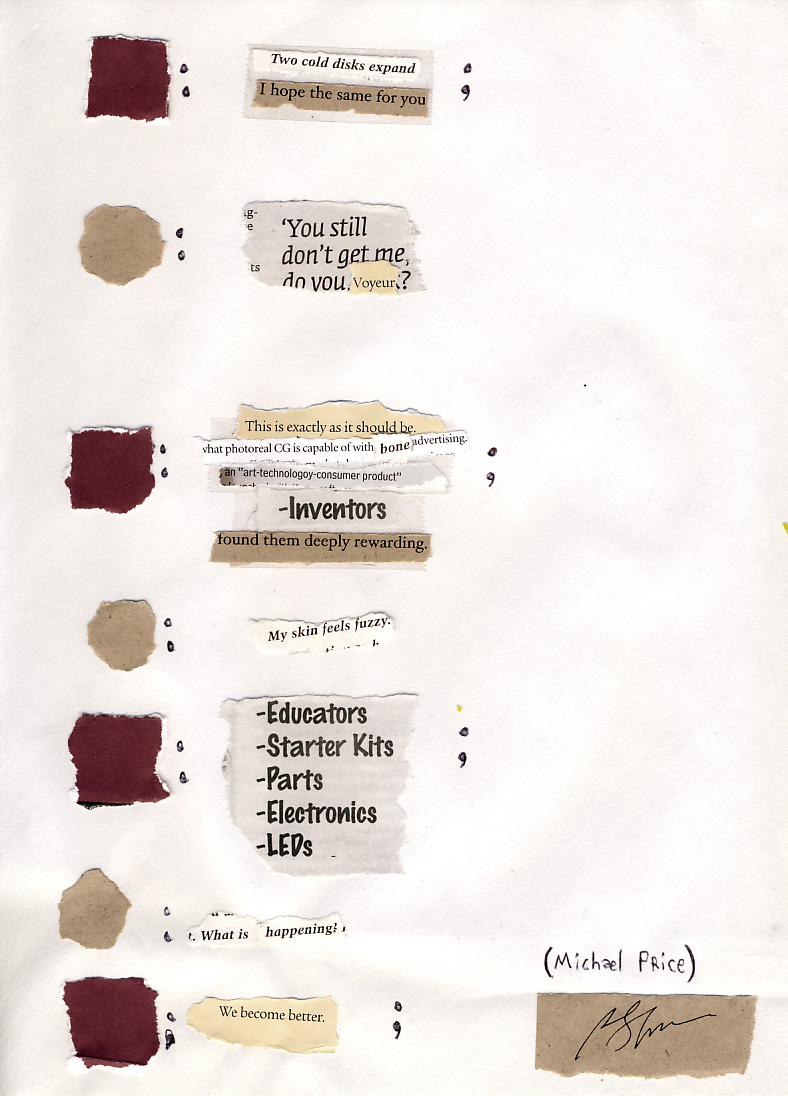 : Two cold disks expand ;
I hope the same for you
g-
e
ts
: ‘You still
don’t get me,
do you, Voyeur ?
This is exactly as it should be.
what photoreal CG is capable of with bone advertising.
: , an "art-technologoy-consumer product" ;
-Inventors
found them deeply rewarding.
: My skin feels fuzzy.
-Educators
: -Starter Kits ;
-Parts
-Electronics
-LEDs
: . What is happening?
(Michael Price)
: We become better. ;